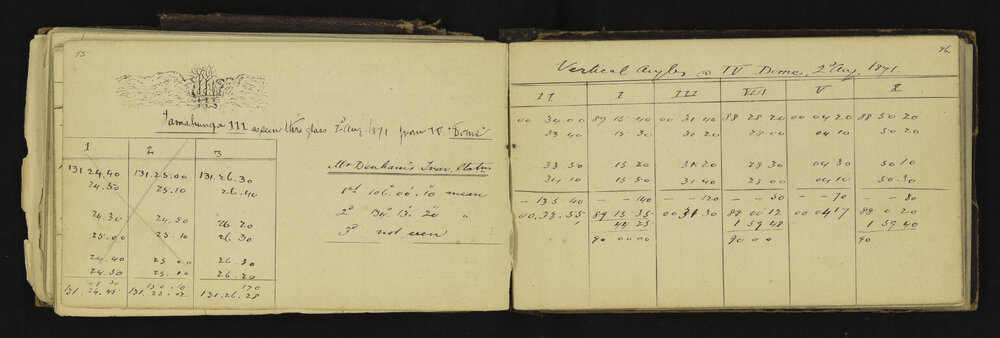 45.
Tamahunga III as seen thro glass. 2d Aug 1871 from IV "Dome"
1 2 3
131.24.40 131.25.00 131.26.30
24.50 25.10 26.40
24.30 24.50 26.20
25.00 25.10 26.30
24.40 25.00 26.30
24.30 25.00 26.20
150.10 170
131.24.45 131.25.02 131.26.28
Mr Denham's Trav. Statns
1st 106°.00'.10" mean
2d 134°.13'.20" "
3d not seen
46.
Vertical Angles @ IV Dome, 2d Aug. 1871.
II I III VIII V X
00 34 00 89 15 40 00 31 40 88 28 20 00 04 20 88 50 20
33 40 15 30 31 20 28 00 04 10 50 20
33 50 15 20 31 20 28 30 04 30 50 10
34 10 15 50 31 40 28 00 04 10 50 30
– 135.40 – 140 – 120 – 50 – 70 – 80
00.33.55 89 15.35 00 31 30 88 00 12 00 04 17 88 0 20
44 25 1 59 48 1 59 40
90 00 00 90 00 0 90